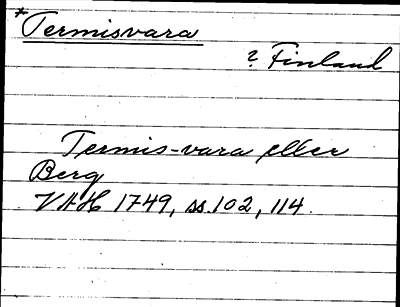 *Termisvara
? Finland
Termis-vara eller
Berg
VAH 1749, ss. 102, 114.